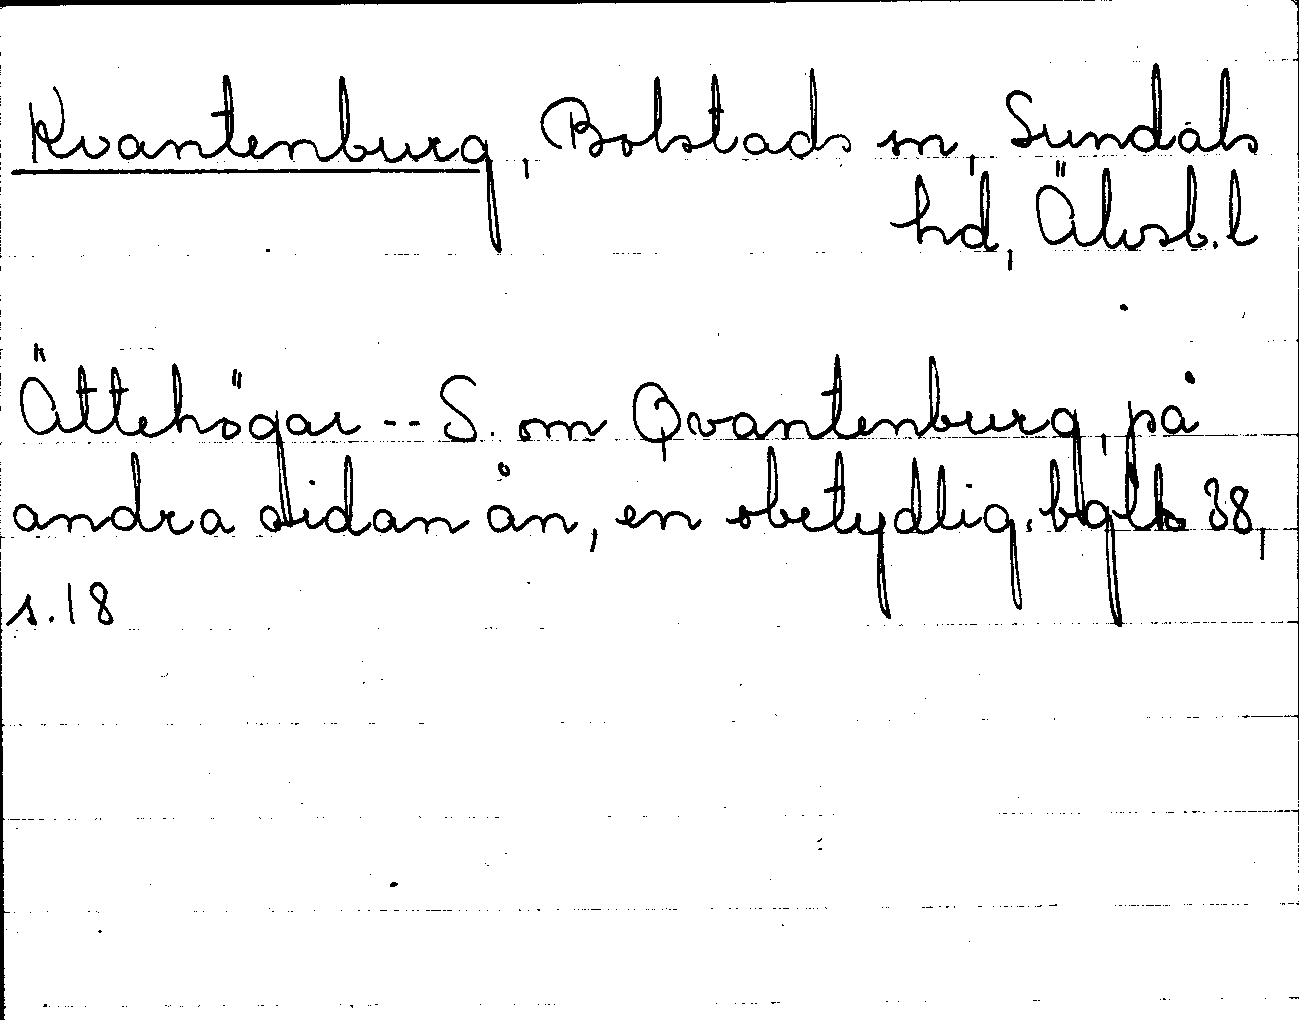 Kvantenburg, Bolstads sn, Sundals
hd, Älvsb. l
Ättehögar -- S. om Qvantenburg, på
andra sidan ån, en obetydlig. bglb 38,
s. 18